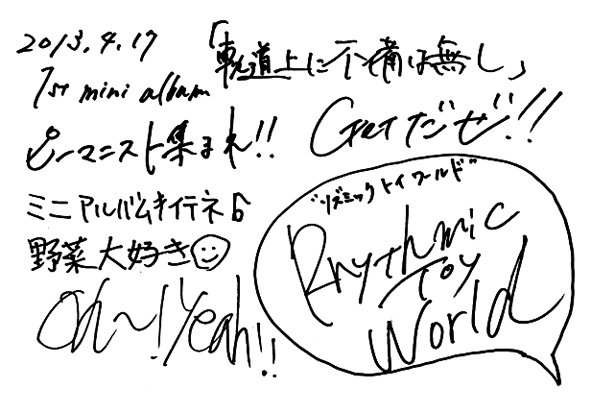 2013.4.17
1st mini album
「軌道上に不備は無し」
Getだぜ!!
ピーマニスト集まれ!!
ミニアルバムキイテネ♪
野菜大好き☺
Oh~!Yeah!!
"リズミックトイワールド"
Rhythmic
Toy
World